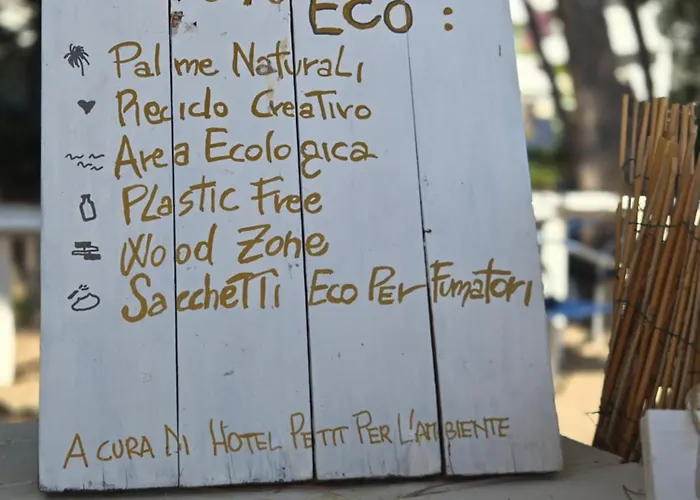 ECO :
Palme Naturali
Riciclo Creativo
Area Ecologica
Plastic Free
Wood Zone
Sacchetti Eco Per Fumatori
A CURA DI HOTEL PETIT PER L'AMBIENTE